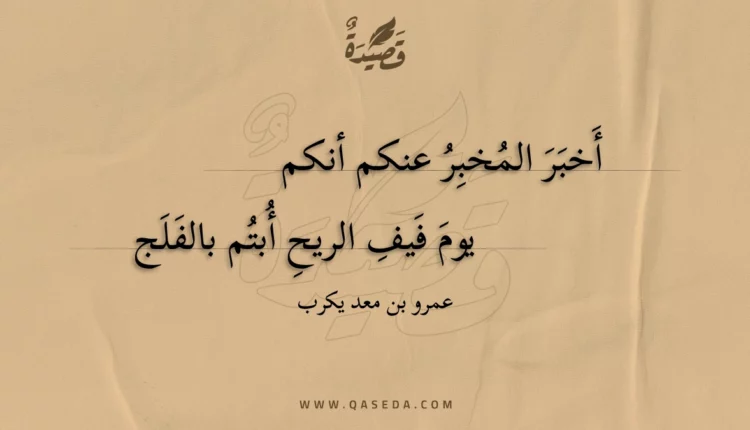 قَصِيْدَةٌ
أَخبَرَ المُخبِرُ عنكم أنكم
يومَ فَيفِ الريحِ أُبتُم بالفَلَج
عمرو بن معد يكرب
WWW.QASEDA.COM